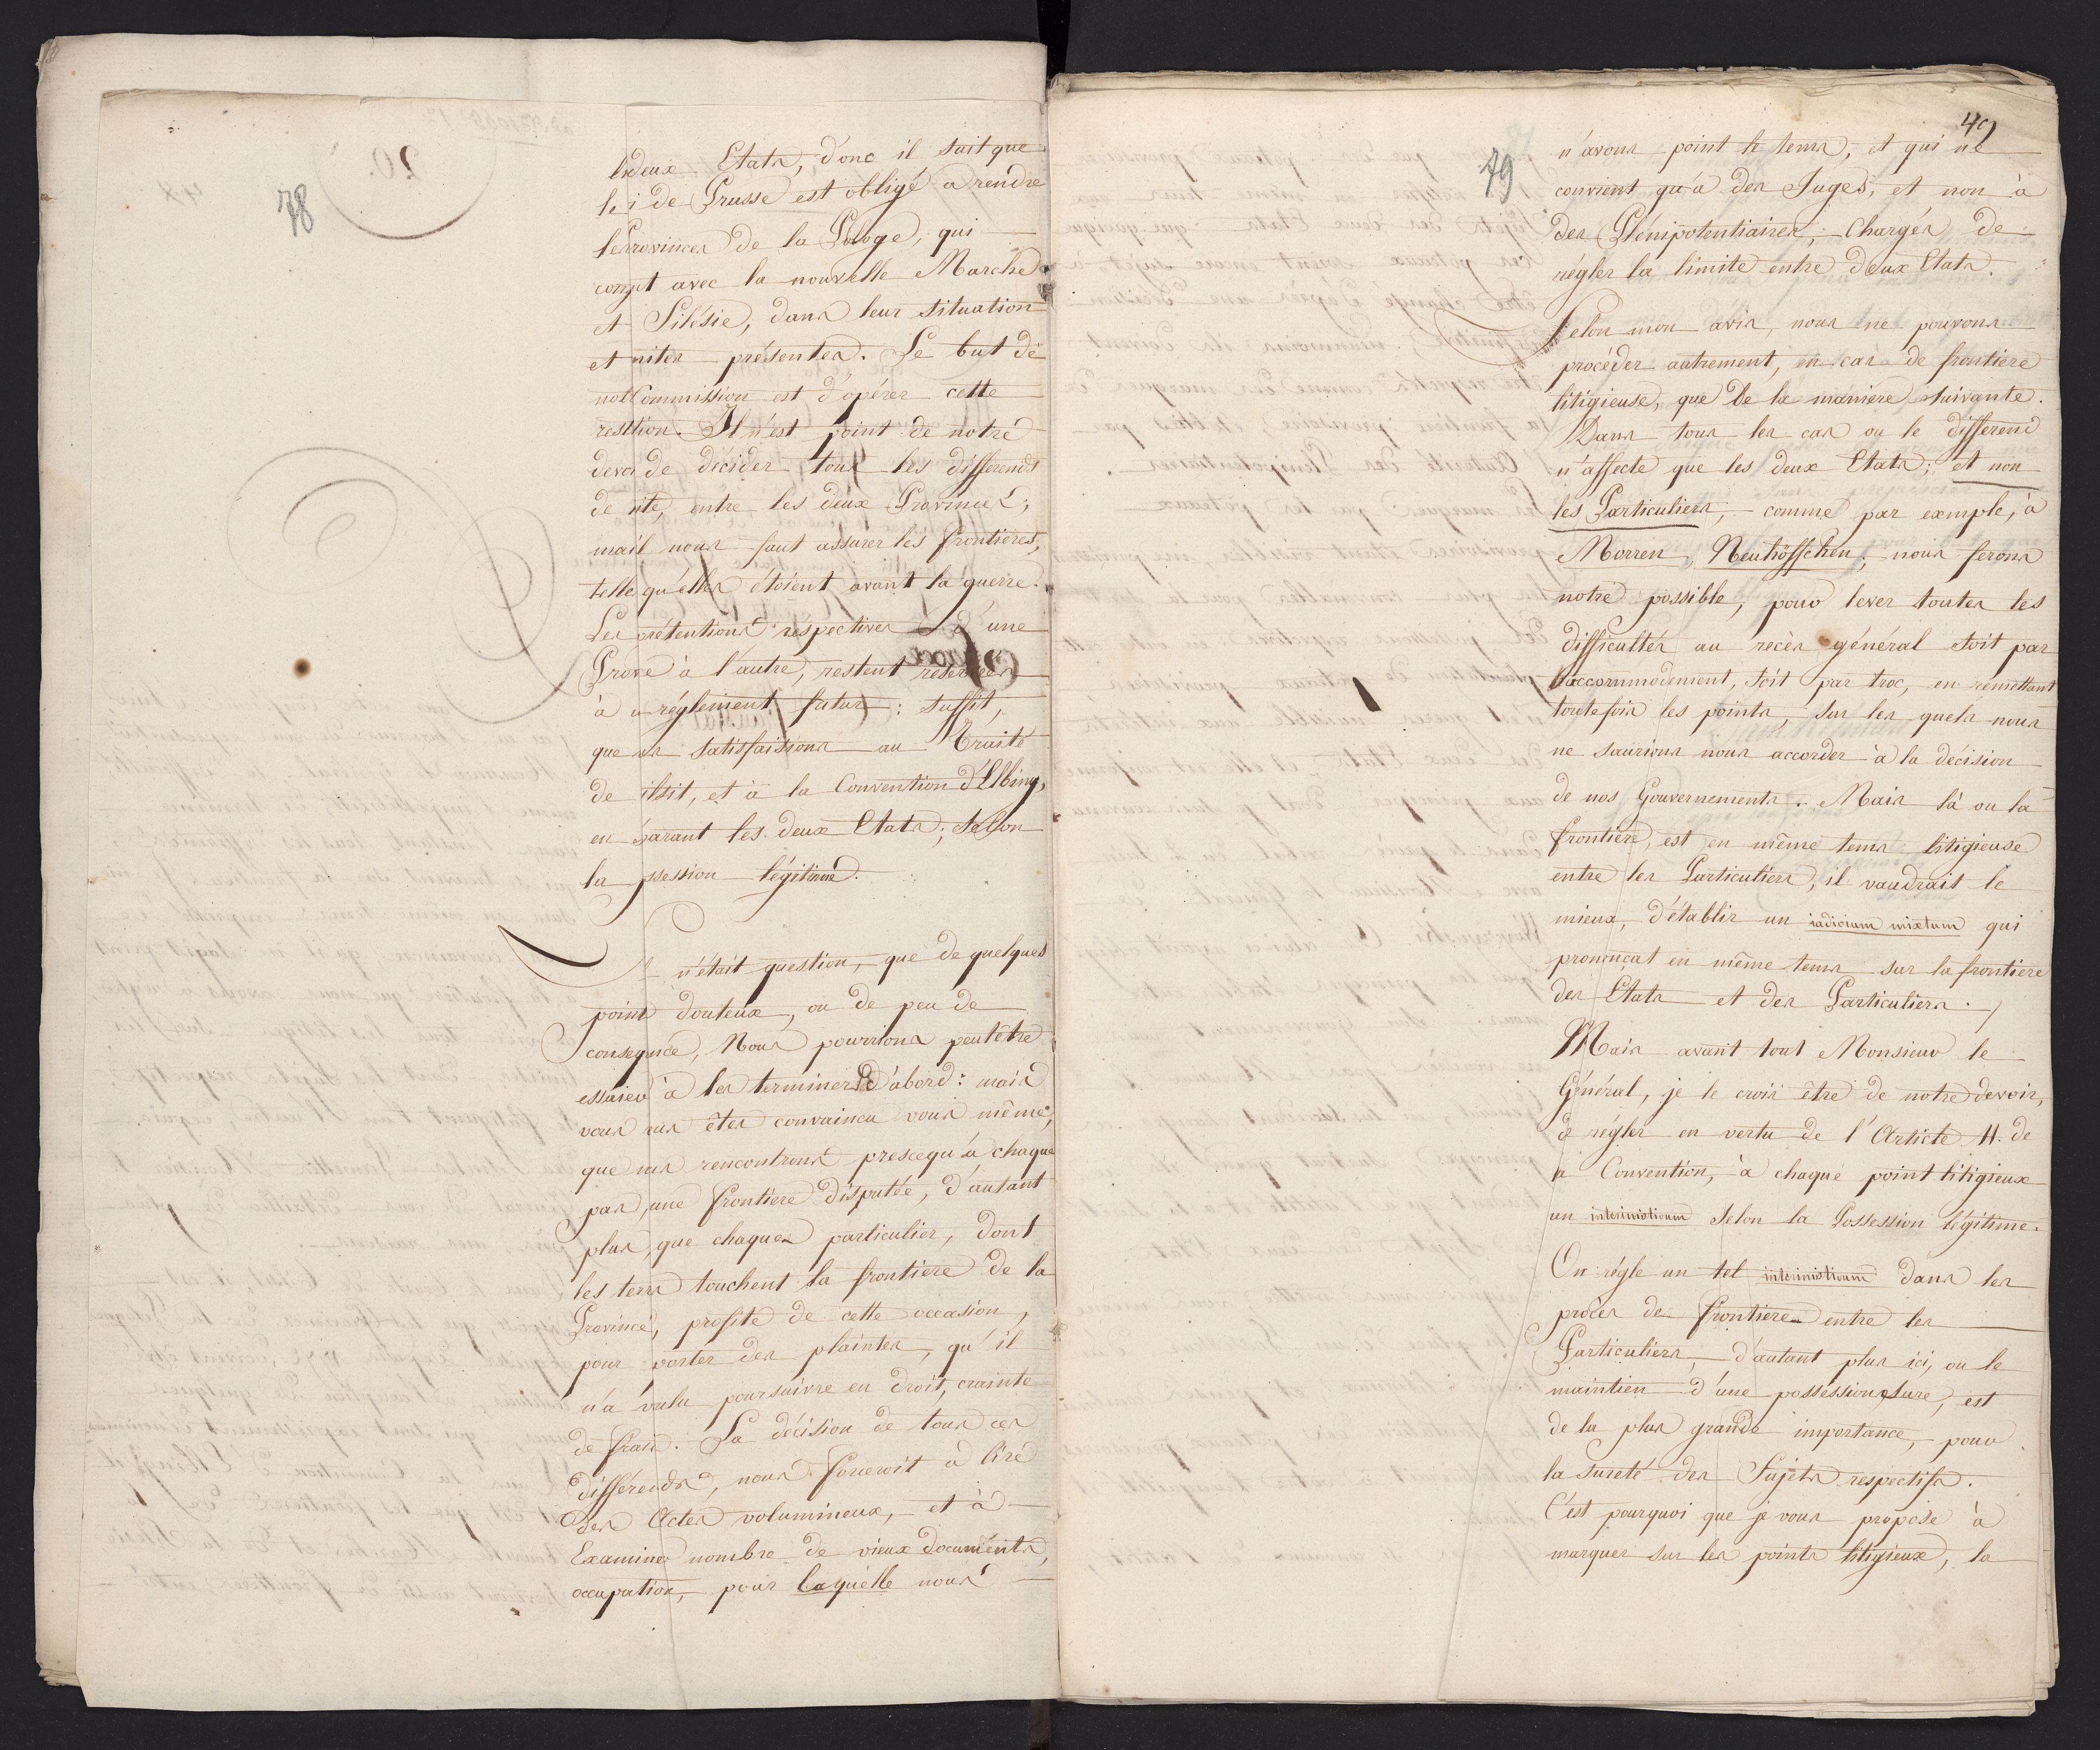 78
les deux Etats, donc il suit que
le i de Prusse est obligé a rendre
les rovinces de la Pologe, qui
cont avec la nouvelle Marche
et Silésie, dans leur situation
et mites présentes. Le but de
not Commission est d'opérer cette
resttion. Il n'est point de notre
devoi de décider tous les differends
de ite, entre les deux Provinces;
mail nous faut assurer les frontieres,
telle qu'elles étoient avant la guerre.
Les prétentions réspectives d'une
Prove à l'autre, restent réservées
à u réglement futur: suffit,
que us satisfaisions au Traité
de ilsit, et à la Convention d'Elbing,
en éparant les deux Etats; selon
la pssession légitime.
n'était question, que de quelques
point douteux, ou de peu de
consequnce, Nous pourrions peutêtre
essaier à les terminer d'abord: mais
vous us êtes convaincu vous même,
que us rencontrons prescequ'à chaque
pas, une frontiere disputée, d'autant
plus, que chaque particulier, dont
les terrs touchent la frontiere de la
Province, profite de cette occasion,
pour porter des plaintes, qu'il
n'a vulu poursuivre en droit, crainte
de frais. La décision de tous ces
différends, nous forceroit a lire
des Actes volumineux, et à
Examiner nombre de vieux documents,
occupation, pour laquelle nous
49
79
n'avons point le tems, et qui ne
convient qu'à des Juges, et non à
des Plénipotentiaires, Chargés de
régler la limite entre deux Etats.
Selon mon avis, nous ne pouvons
procéder autrement, en cas de frontiere
litigieuse, que de la maniere suivante.
Dans tous les cas ou le differend
n'affecte que les deux Etats; et non
les Particuliers, comme par exemple, à
Morren, Neuhöffchen; nous ferons
notre possible, pour lever toutes les
difficultés au recès général soit par
accommodement, soit par troc, en remettant
toutefois les points, sur les quels nous
ne saurions nous accorder à la décision
de nos Gouvernements. Mais là ou la
frontiere, est en même tems litigieuse
entre les Particuliers, il vaudrait le
mieux, d'établir un iudicium mixtum qui
prononçat en même tems sur la frontiere
des Etats et des Particuliers.
Mais avant tout Monsieur le
Général, je le crois être de notre devoir,
de régler en vertu de l'Article 11. de
la Convention, à chaque point litigieux
un interimisticum selon la Possession légitime.
On régle un tel interimisticum dans les
procès de frontiere entre les
Particuliers, d'autant plus ici, ou le
maintien d'une possession sure, est
de la plus grande importance, pour
la sureté des Sujets respectifs.
C'est pourquoi que je vous propose à
marquer sur les points litigieux, la